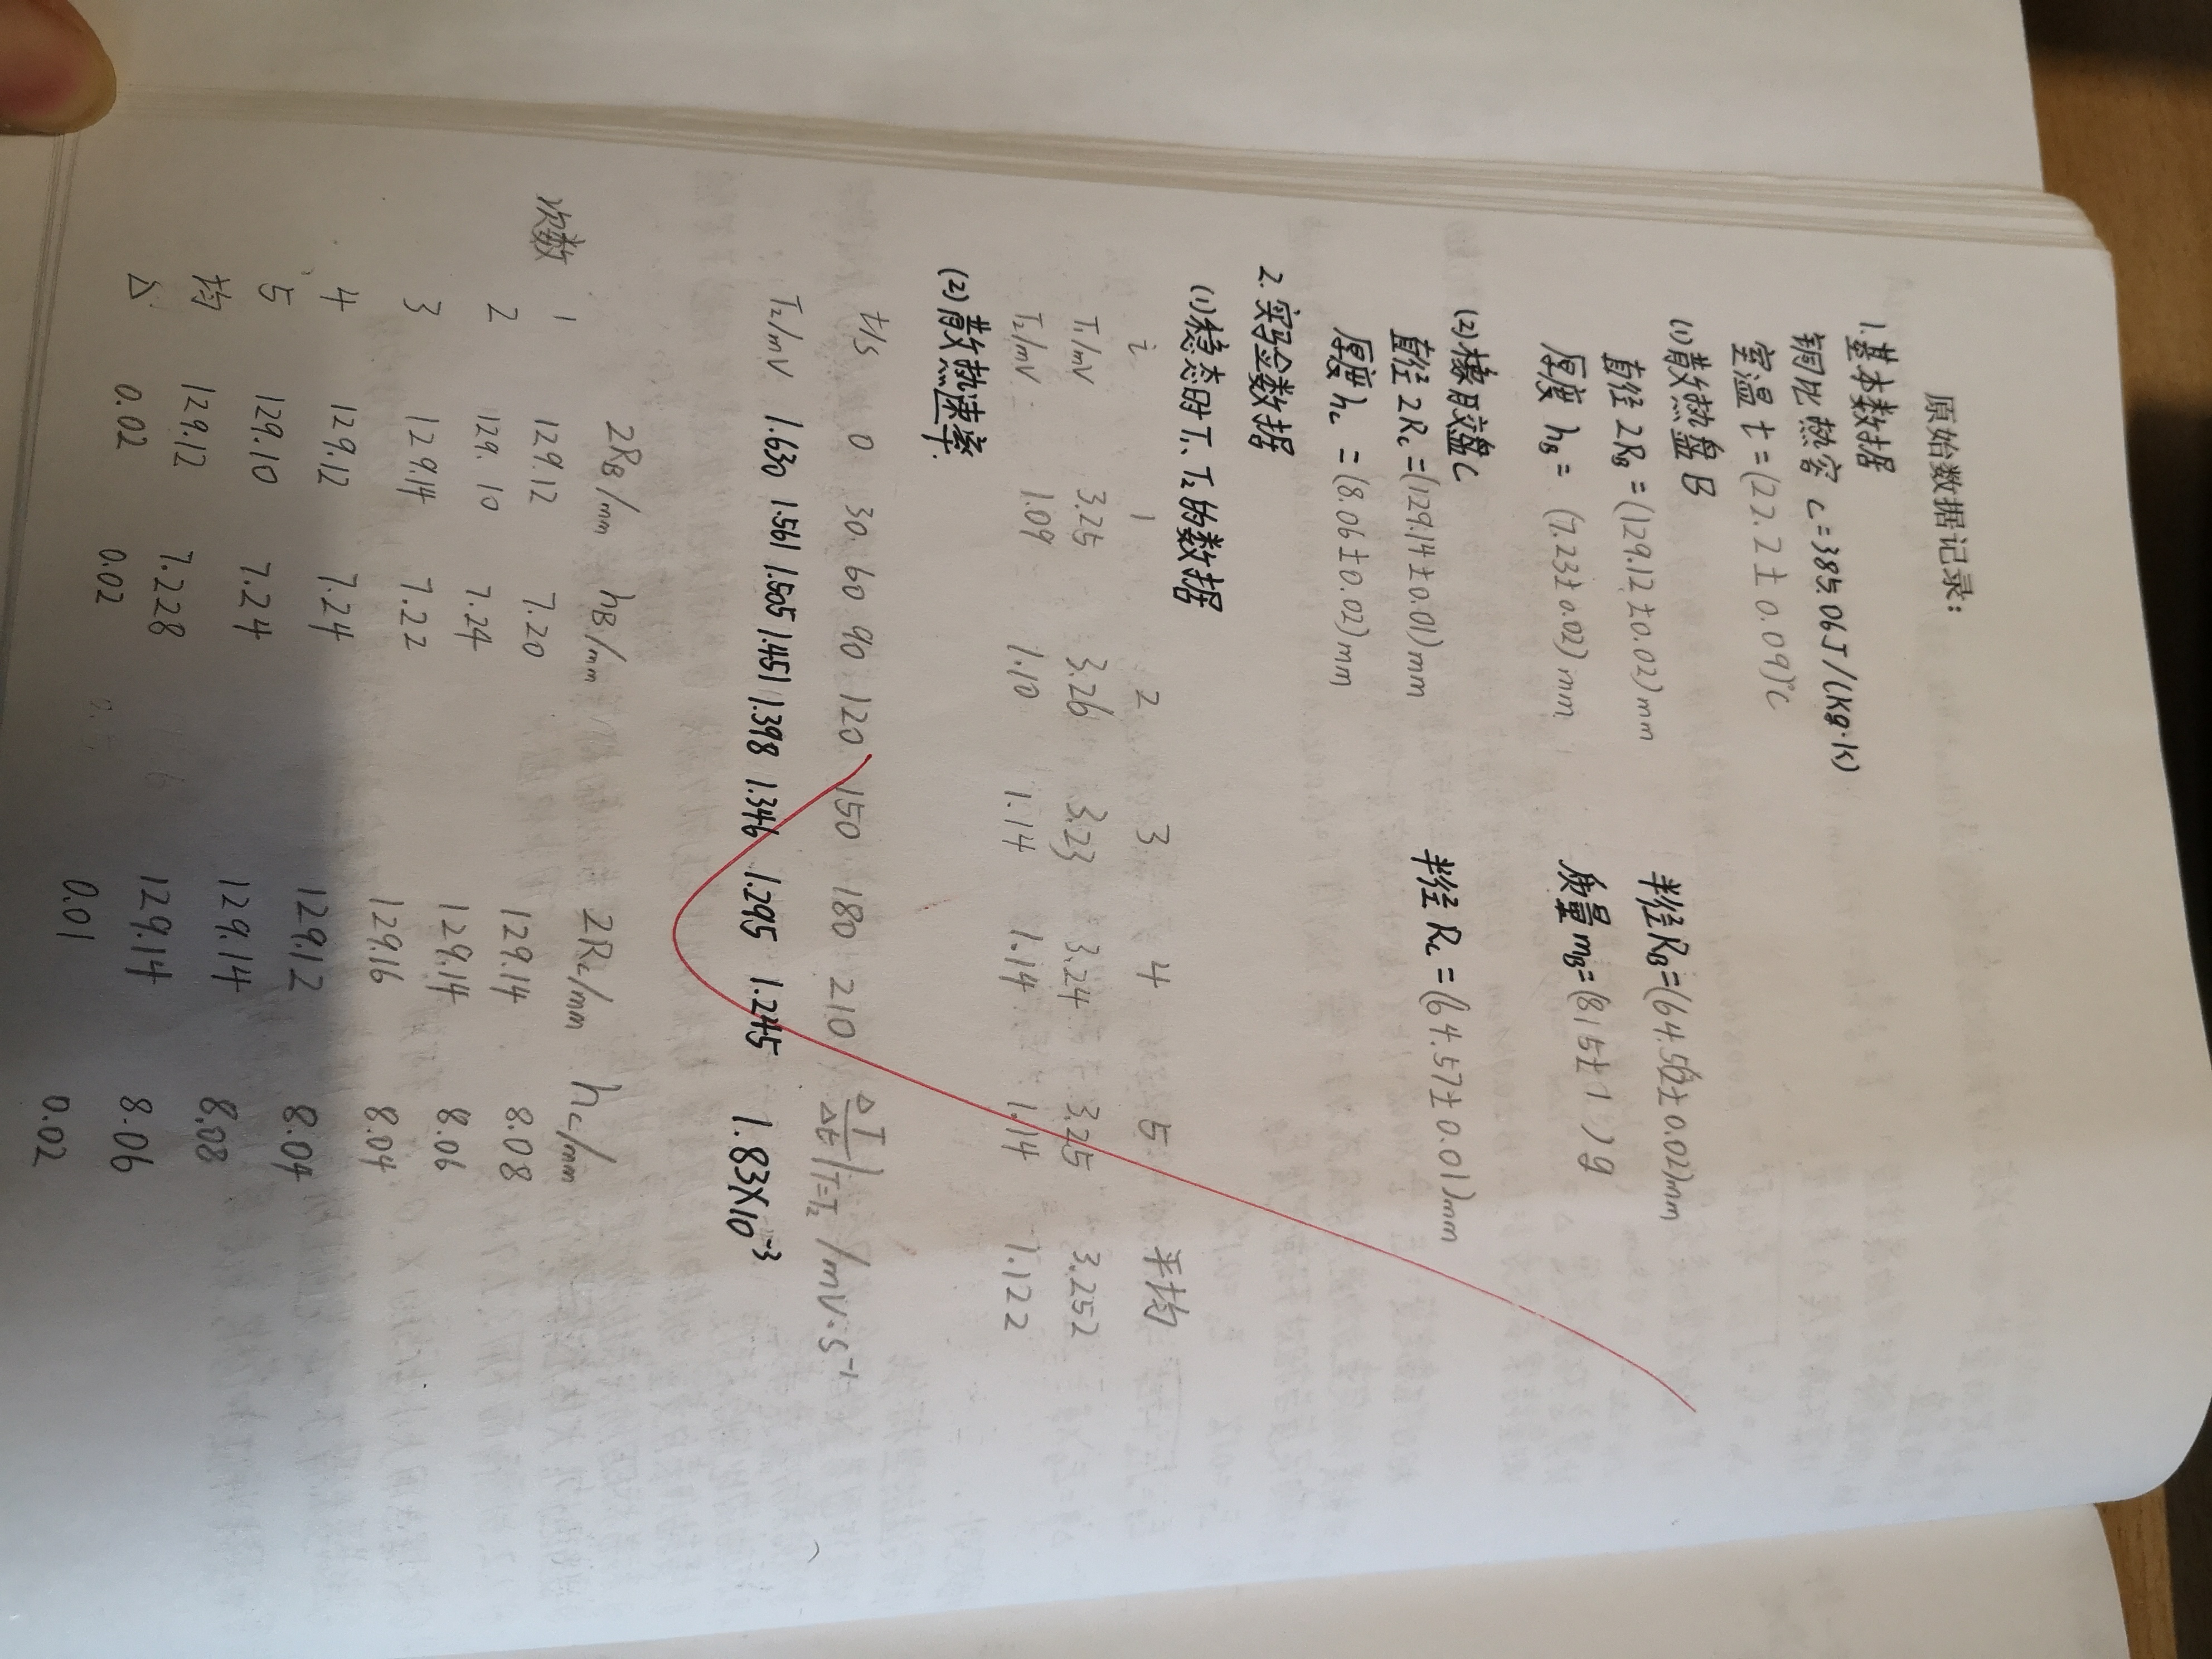 原始数据记录：
1.基本数据
铜比热容 c=385.06J/(kg·K)
室温 t=(22.2±0.09)℃
(1)散热盘B
直径 2RB=(129.12±0.02)mm 半径RB=(64.56±0.02)mm
厚度 hB= (7.23±0.02)mm 质量mB=(815±1)g
(2)橡胶盘C
直径 2Rc=(129.14±0.01)mm 半径Rc=(64.57±0.01)mm
厚度hc =(8.06±0.02)mm
2.实验数据
(1)稳态时T₁、T₂的数据
i 1 2 3 4 5 平均
T₁/mV 3.25 3.26 3.23 3.24 3.25 3.252
T₂/mV 1.09 1.10 1.14 1.14 1.14 1.122
(2)散热速率
t/s 0 30 60 90 120 150 180 210 ΔT/Δt|T=T₂/mV·s⁻¹
T₂/mV 1.630 1.561 1.505 1.451 1.398 1.346 1.295 1.245 1.83×10⁻³
次数 2RB/mm hB/mm 2Rc/mm hc/mm
1 129.12 7.20 129.14 8.08
2 129.10 7.24 129.14 8.06
3 129.14 7.22 129.16 8.04
4 129.12 7.24 129.12 8.04
5 129.10 7.24 129.14 8.08
均 129.12 7.228 129.14 8.06
Δ 0.02 0.02 0.01 0.02